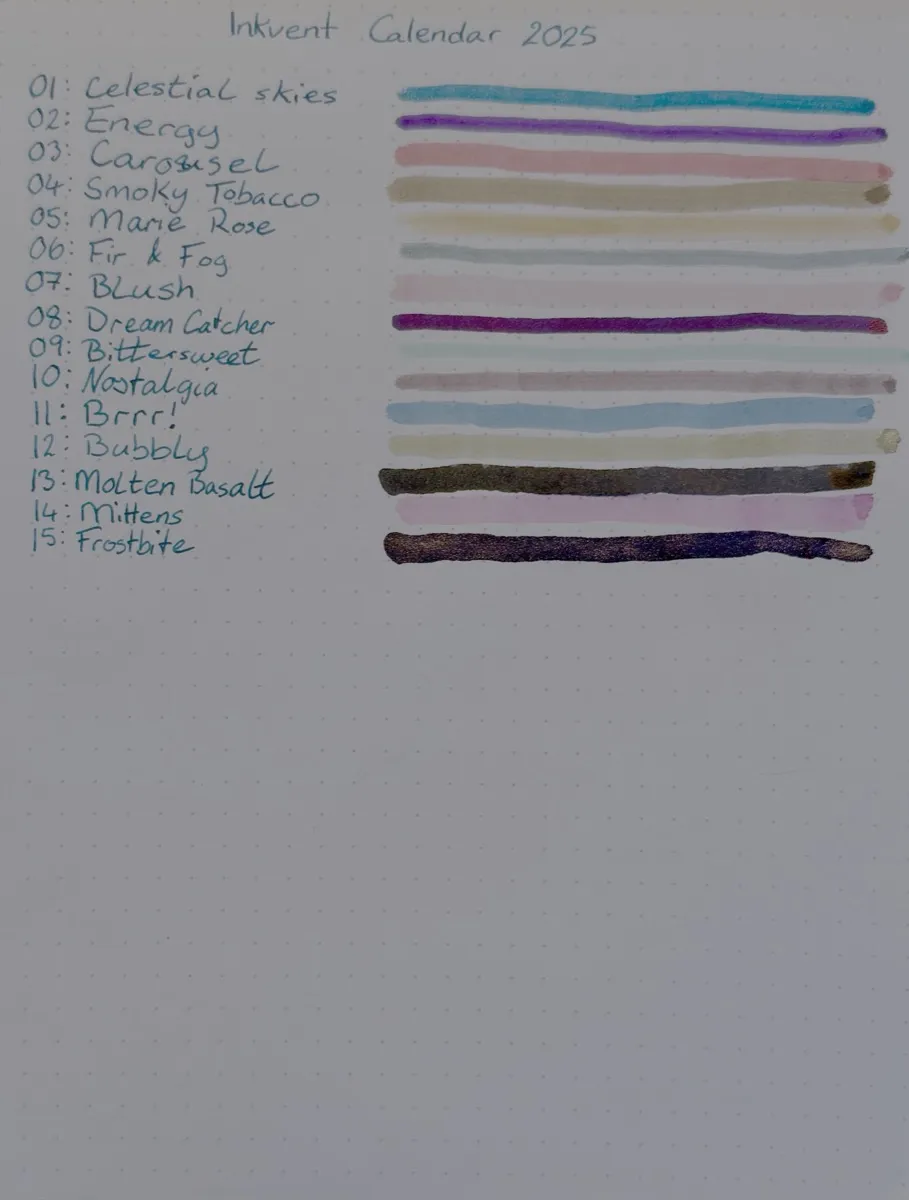 Inkvent Calendar 2025
01: Celestial skies
02: Energy
03: Carousel
04: Smoky Tobacco
05: Marie Rose
06: Fir & Fog
07: Blush
08: Dream Catcher
09: Bittersweet
10: Nostalgia
11: Brrr!
12: Bubbly
13: Molten Basalt
14: Mittens
15: Frostbite